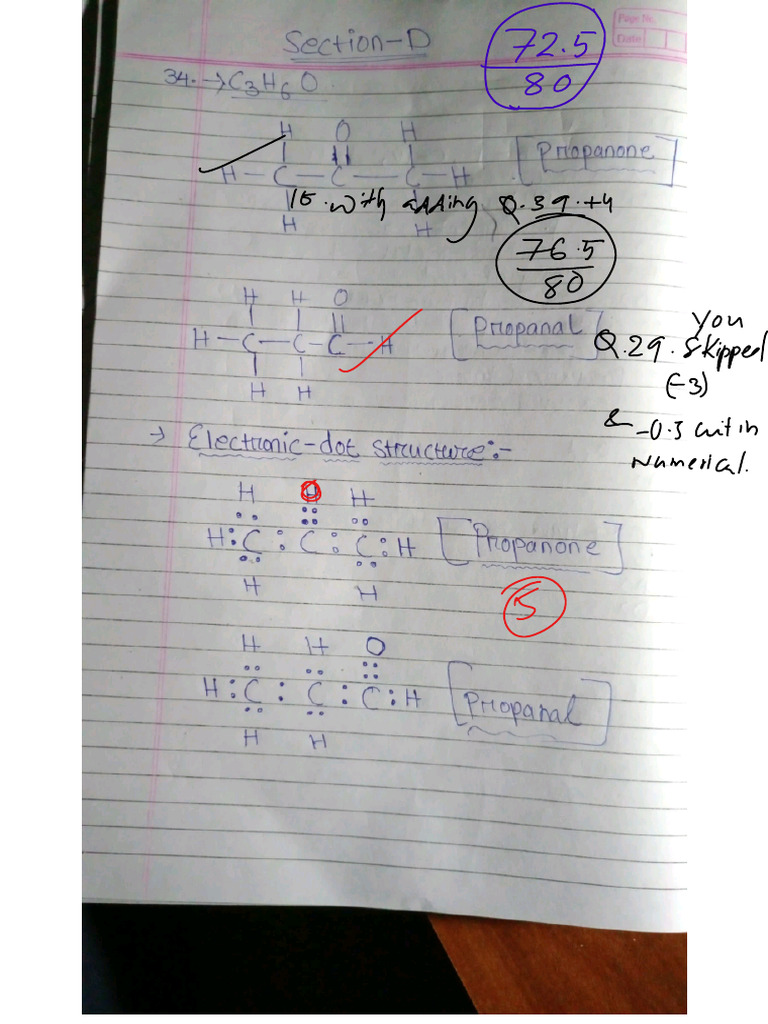 Page No.
Date
Section-D
72.5
80
34. → C3H6O
H O H
H - C - C - C - H [Propanone]
H H
IF. with adding Q.39. +4
76.5
80
H H O
H - C - C - C - H [Propanal]
H H
You
Q.29. Skipped
(-3)
& -0.5 cut in
Numerical.
→ Electronic-dot structure:-
H H H
H : C : C : C : H [Propanone]
H H
5
H H O
H : C : C : C : H [Propanal]
H H